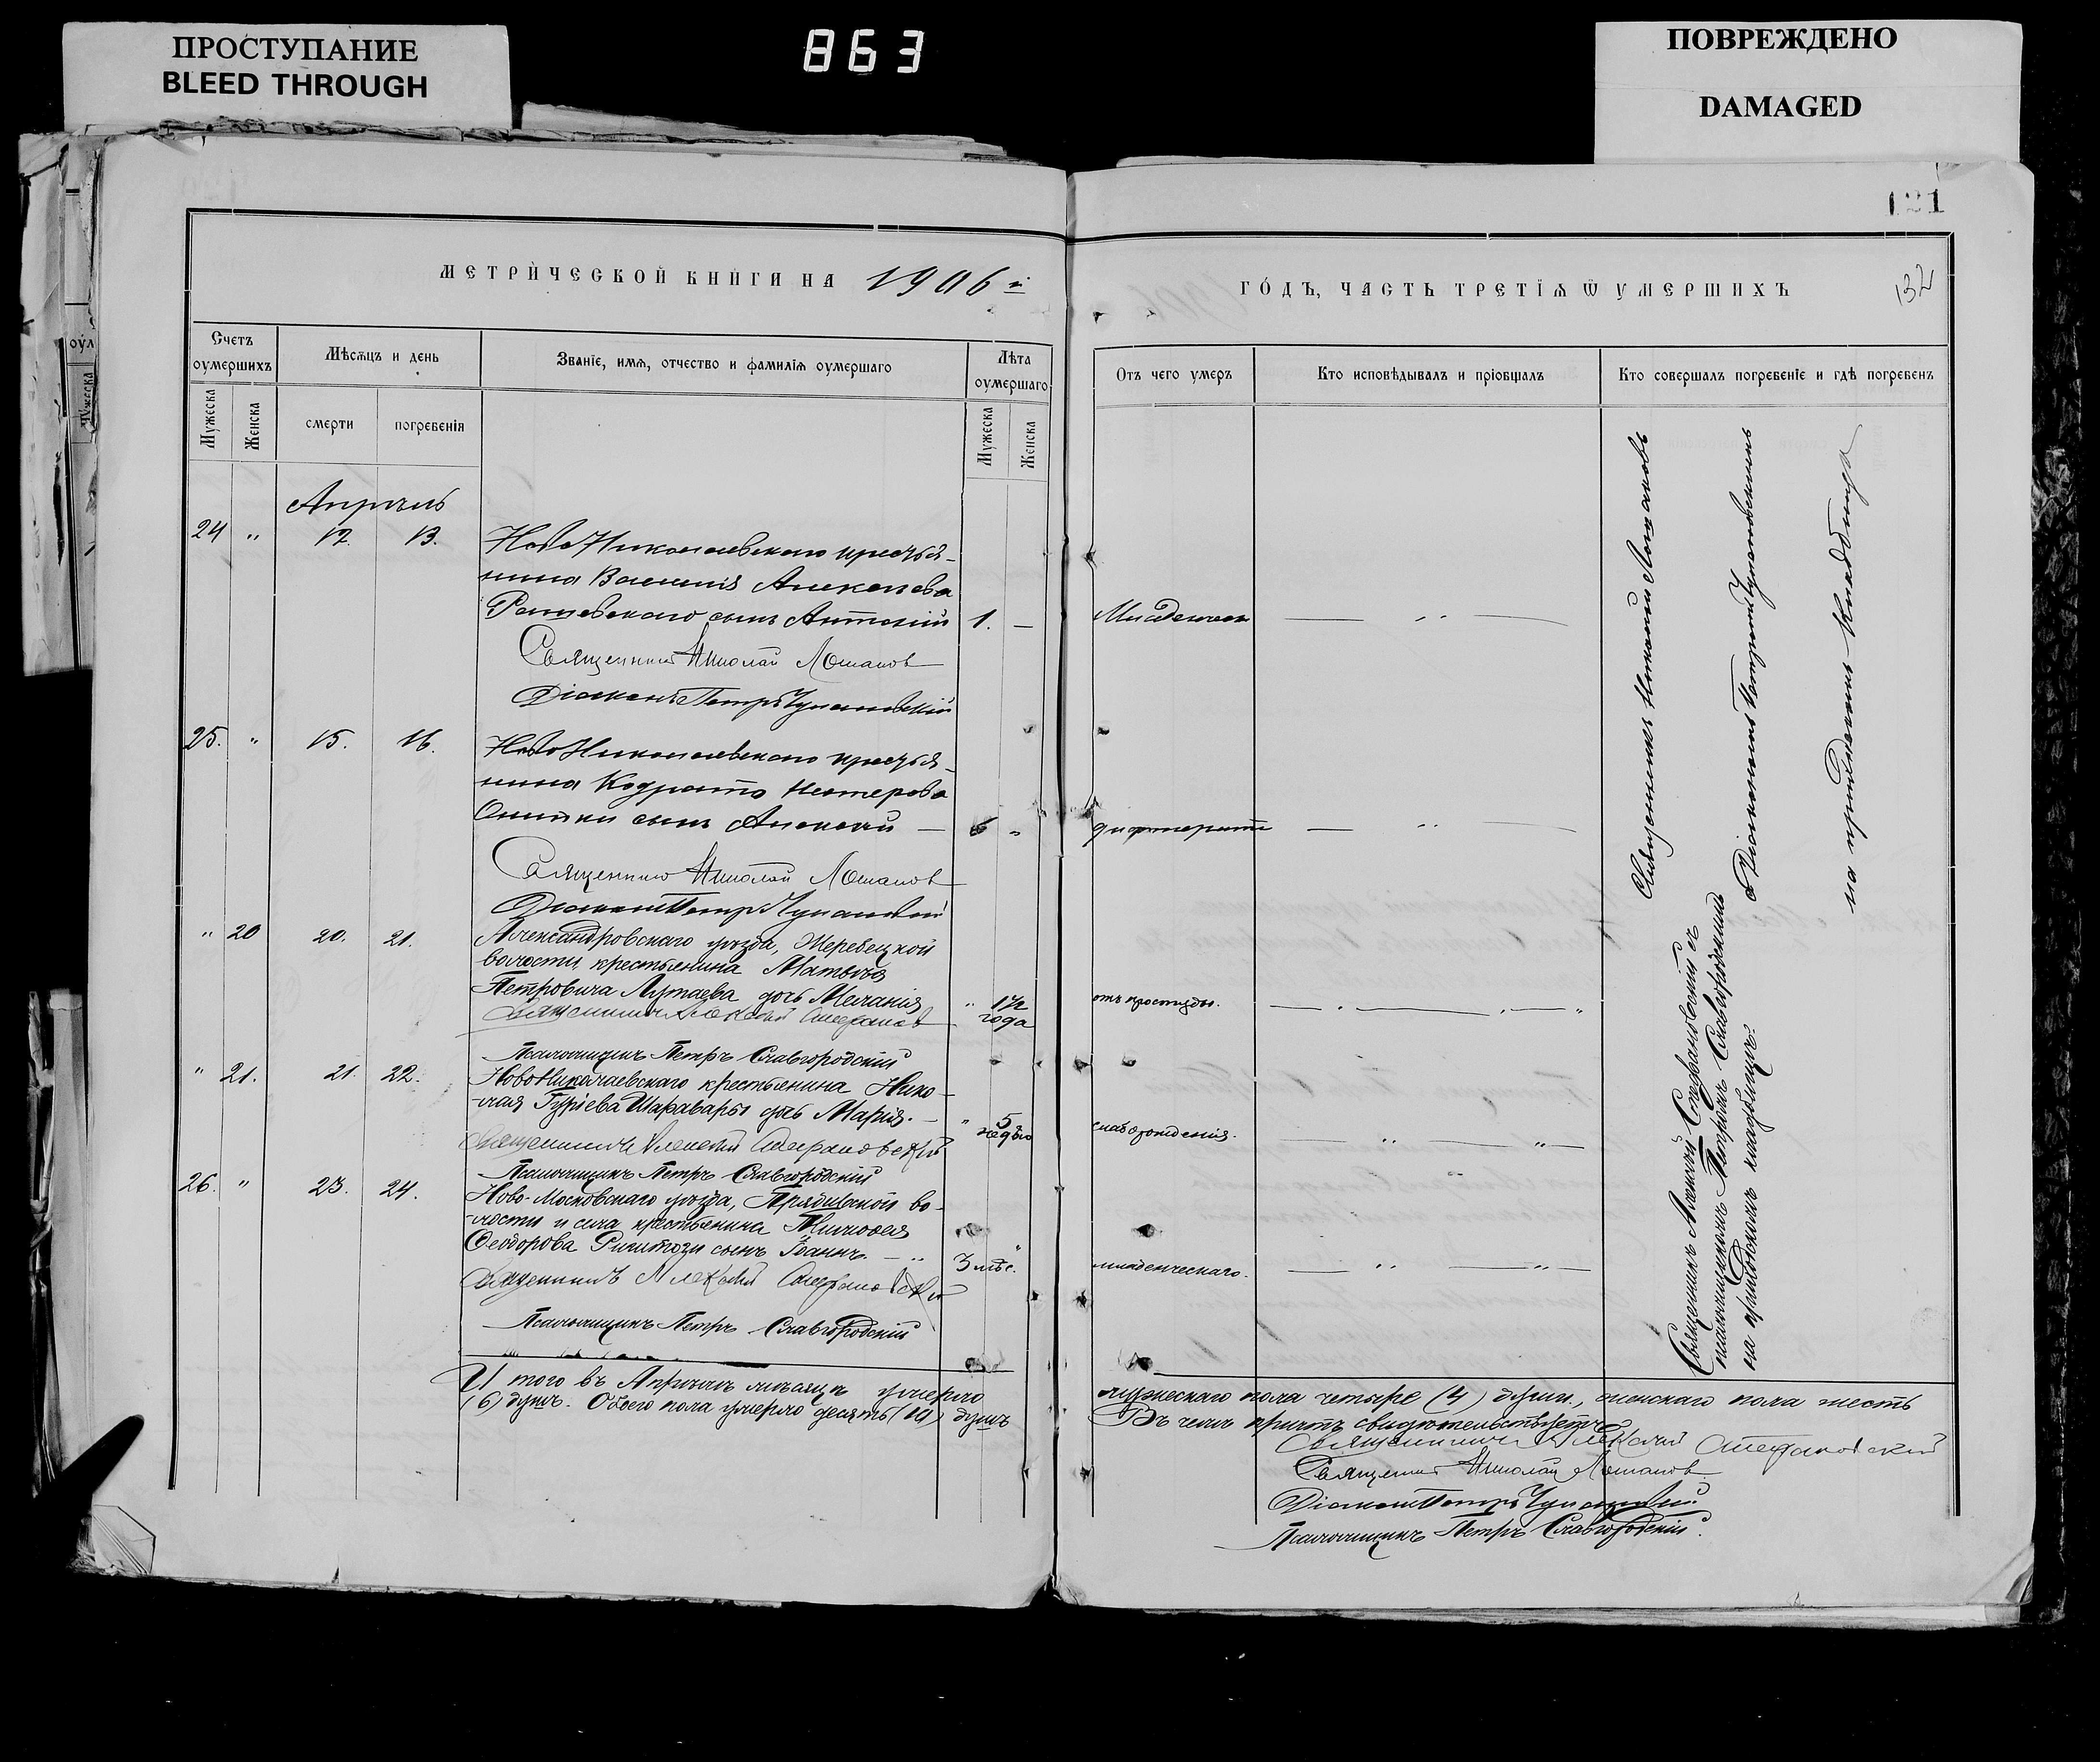 ПРОСТУПАНИЕ
BLEED THROUGH
863
ПОВРЕЖДЕНО
DAMAGED
121
МЕТРИЧЕСКОЙ КНИГИ НА 1906 й
ГОДЪ, ЧАСТЬ ТРЕТІЯ Ѿ УМЕРШИХЪ
132
Счетъ оумершихъ
Мужеска
Женска
Мѣсяцъ и день
смерти
погребенія
Званіе, имя, отчество и фамилія оумершаго
Лѣта оумершаго
Мужеска
Женска
Отъ чего умеръ
Кто исповѣдывалъ и пріобщалъ
Кто совершалъ погребеніе и гдѣ погребенъ
Апрѣль
24 " 12. 13.
Ново Николаевскаго крестья-
нина Василія Алексѣева
сынъ Антоній 1. — Младенческ
Священникъ Николай Лошаков
Діаконъ Петръ
25. " 15. 16.
Ново Николаевскаго крестья-
нина Кодрата Нестерова
сынъ Алексѣй — 6 " дифтерита
Священникъ Николай Лошаков
Діаконъ Петръ
" 20 20. 21.
Александровскаго уѣзда, Жеребецкой
волости, крестьянина Матвѣя
Петровича Лутаева дочь Меланія " 1½ года отъ простуды.
Священникъ Алексѣй Стефановс
Псаломщикъ Петръ Славгородскій
" 21. 21. 22.
Ново Николаевскаго крестьянина Нико-
-лая Гуріева Шаравары дочь Марія. — " 5 недѣль слаборожденія.
Священникъ Алексѣй Стефановскій
Псаломщикъ Петръ Славгородскій
26. " 23. 24.
Ново-Московскаго уѣзда, волости и села крестьянина
Ѳеодорова сынъ Іоаннъ. — 3 мѣс. " младенческаго.
Священникъ Алексѣй Стефановскій
Псаломщикъ Петръ Славгородскій
Священникъ Николай Лошаковъ
съ Діакономъ Петромъ
на приходскомъ кладбищѣ
Священникъ Алексѣй Стефановскій съ
псаломщикомъ Петромъ Славгородскимъ
на приходскомъ кладбищѣ.
И того въ Апрѣлѣ мѣсяцѣ умерло мужескаго пола четыре (4) души, женскаго пола шесть
(6) душъ. Обоего пола умерло десять (10) душъ Въ чемъ причтъ свидѣтельствуетъ
Священникъ Алексѣй Стефановскій
Священникъ Николай Лошаков
Діаконъ Петръ
Псаломщикъ Петръ Славгородскій.